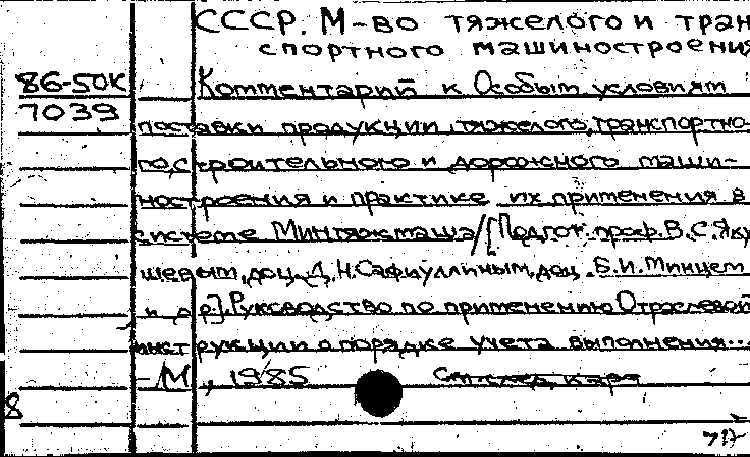 СССР. М-во тяжелого и тран
спортного машиностроения
86-50К Комментарий к Особым условиям
7039
поставки продукции тяжелого, транспортно-
го, строительного и дорожного маши-
ностроения и практике их применения в
системе Минтяжмаша / [Подгот. проф. В. С. Яку
шевым, доц. Д. Н. Сафиуллиным, доц. Б. И. Минцем
и др.]. Руководство по применению Отраслевой
инструкции о порядке учета выполнения...
– М, 1985 См. след. карт
8